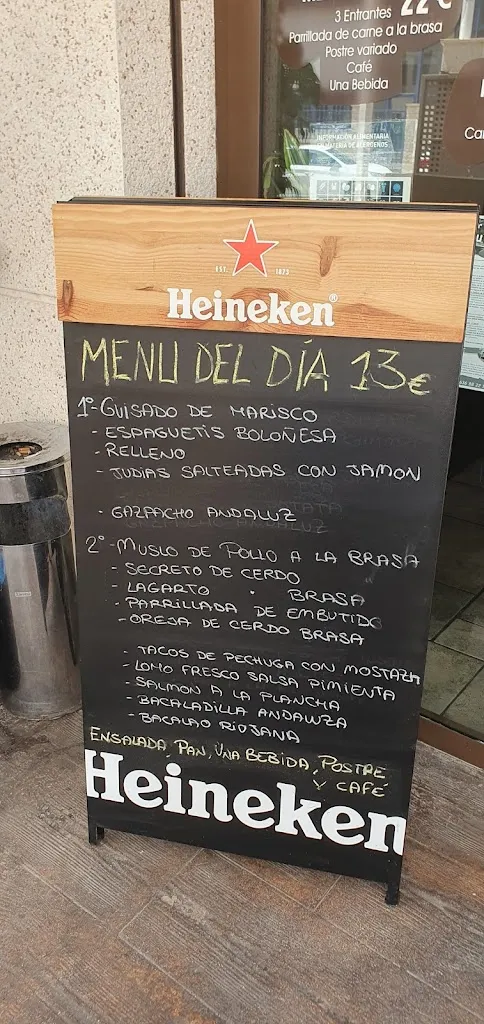 22€
3 Entrantes
Parrillada de carne a la brasa
Postre variado
Café
Una Bebida
INFORMACIÓN ALIMENTARIA
EN MATERIA DE ALÉRGENOS
EST. 1873
Heineken®
MENU DEL DÍA 13€
1º-GUISADO DE MARISCO
- ESPAGUETIS BOLOÑESA
- RELLENO
- JUDIAS SALTEADAS CON JAMON
- GAZPACHO ANDALUZ
2º-MUSLO DE POLLO A LA BRASA
- SECRETO DE CERDO
- LAGARTO · BRASA
- PARRILLADA DE EMBUTIDO
- OREJA DE CERDO BRASA
- TACOS DE PECHUGA CON MOSTAZA
- LOMO FRESCO SALSA PIMIENTA
- SALMON A LA PLANCHA
- BACALADILLA ANDALUZA
- BACALAO RIOJANA
ENSALADA, PAN, UNA BEBIDA, POSTRE
Y CAFÉ
Heineken